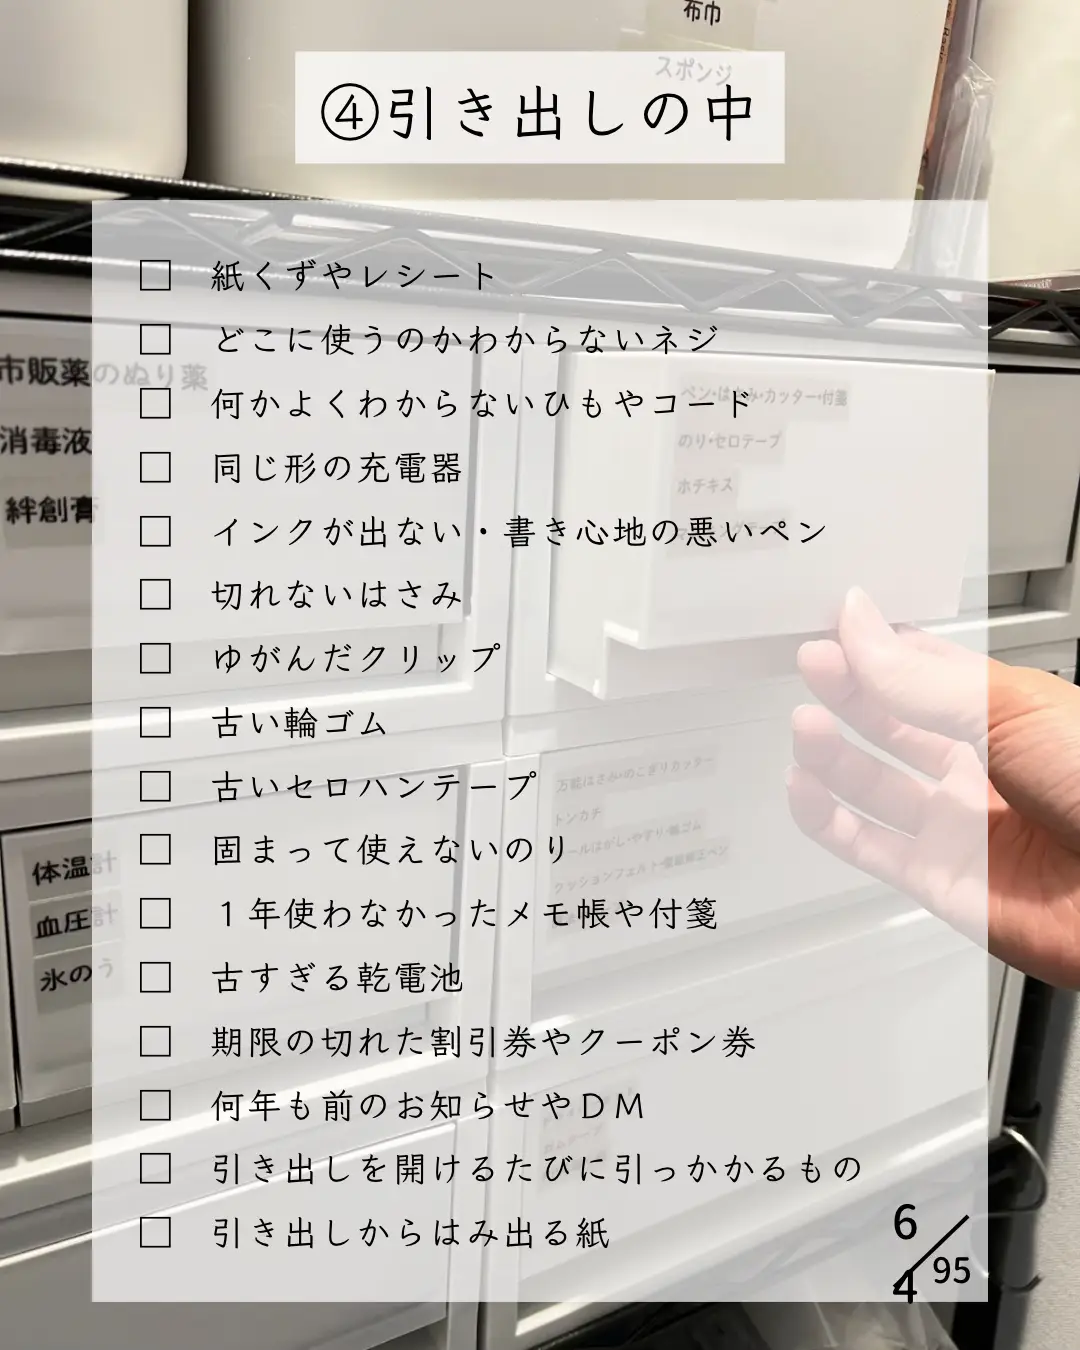 布巾
スポンジ
④引き出しの中
□ 紙くずやレシート
□ どこに使うのかわからないネジ
□ 何かよくわからないひもやコード
□ 同じ形の充電器
□ インクが出ない・書き心地の悪いペン
□ 切れないはさみ
□ ゆがんだクリップ
□ 古い輪ゴム
□ 古いセロハンテープ
□ 固まって使えないのり
□ １年使わなかったメモ帳や付箋
□ 古すぎる乾電池
□ 期限の切れた割引券やクーポン券
□ 何年も前のお知らせやＤＭ
□ 引き出しを開けるたびに引っかかるもの
□ 引き出しからはみ出る紙
64/95
市販薬のぬり薬
消毒液
絆創膏
ペン・はさみ・カッター・付箋
のり・セロテープ
ホチキス
万能はさみ・のこぎりカッター
トンカチ
体温計
血圧計
氷のう